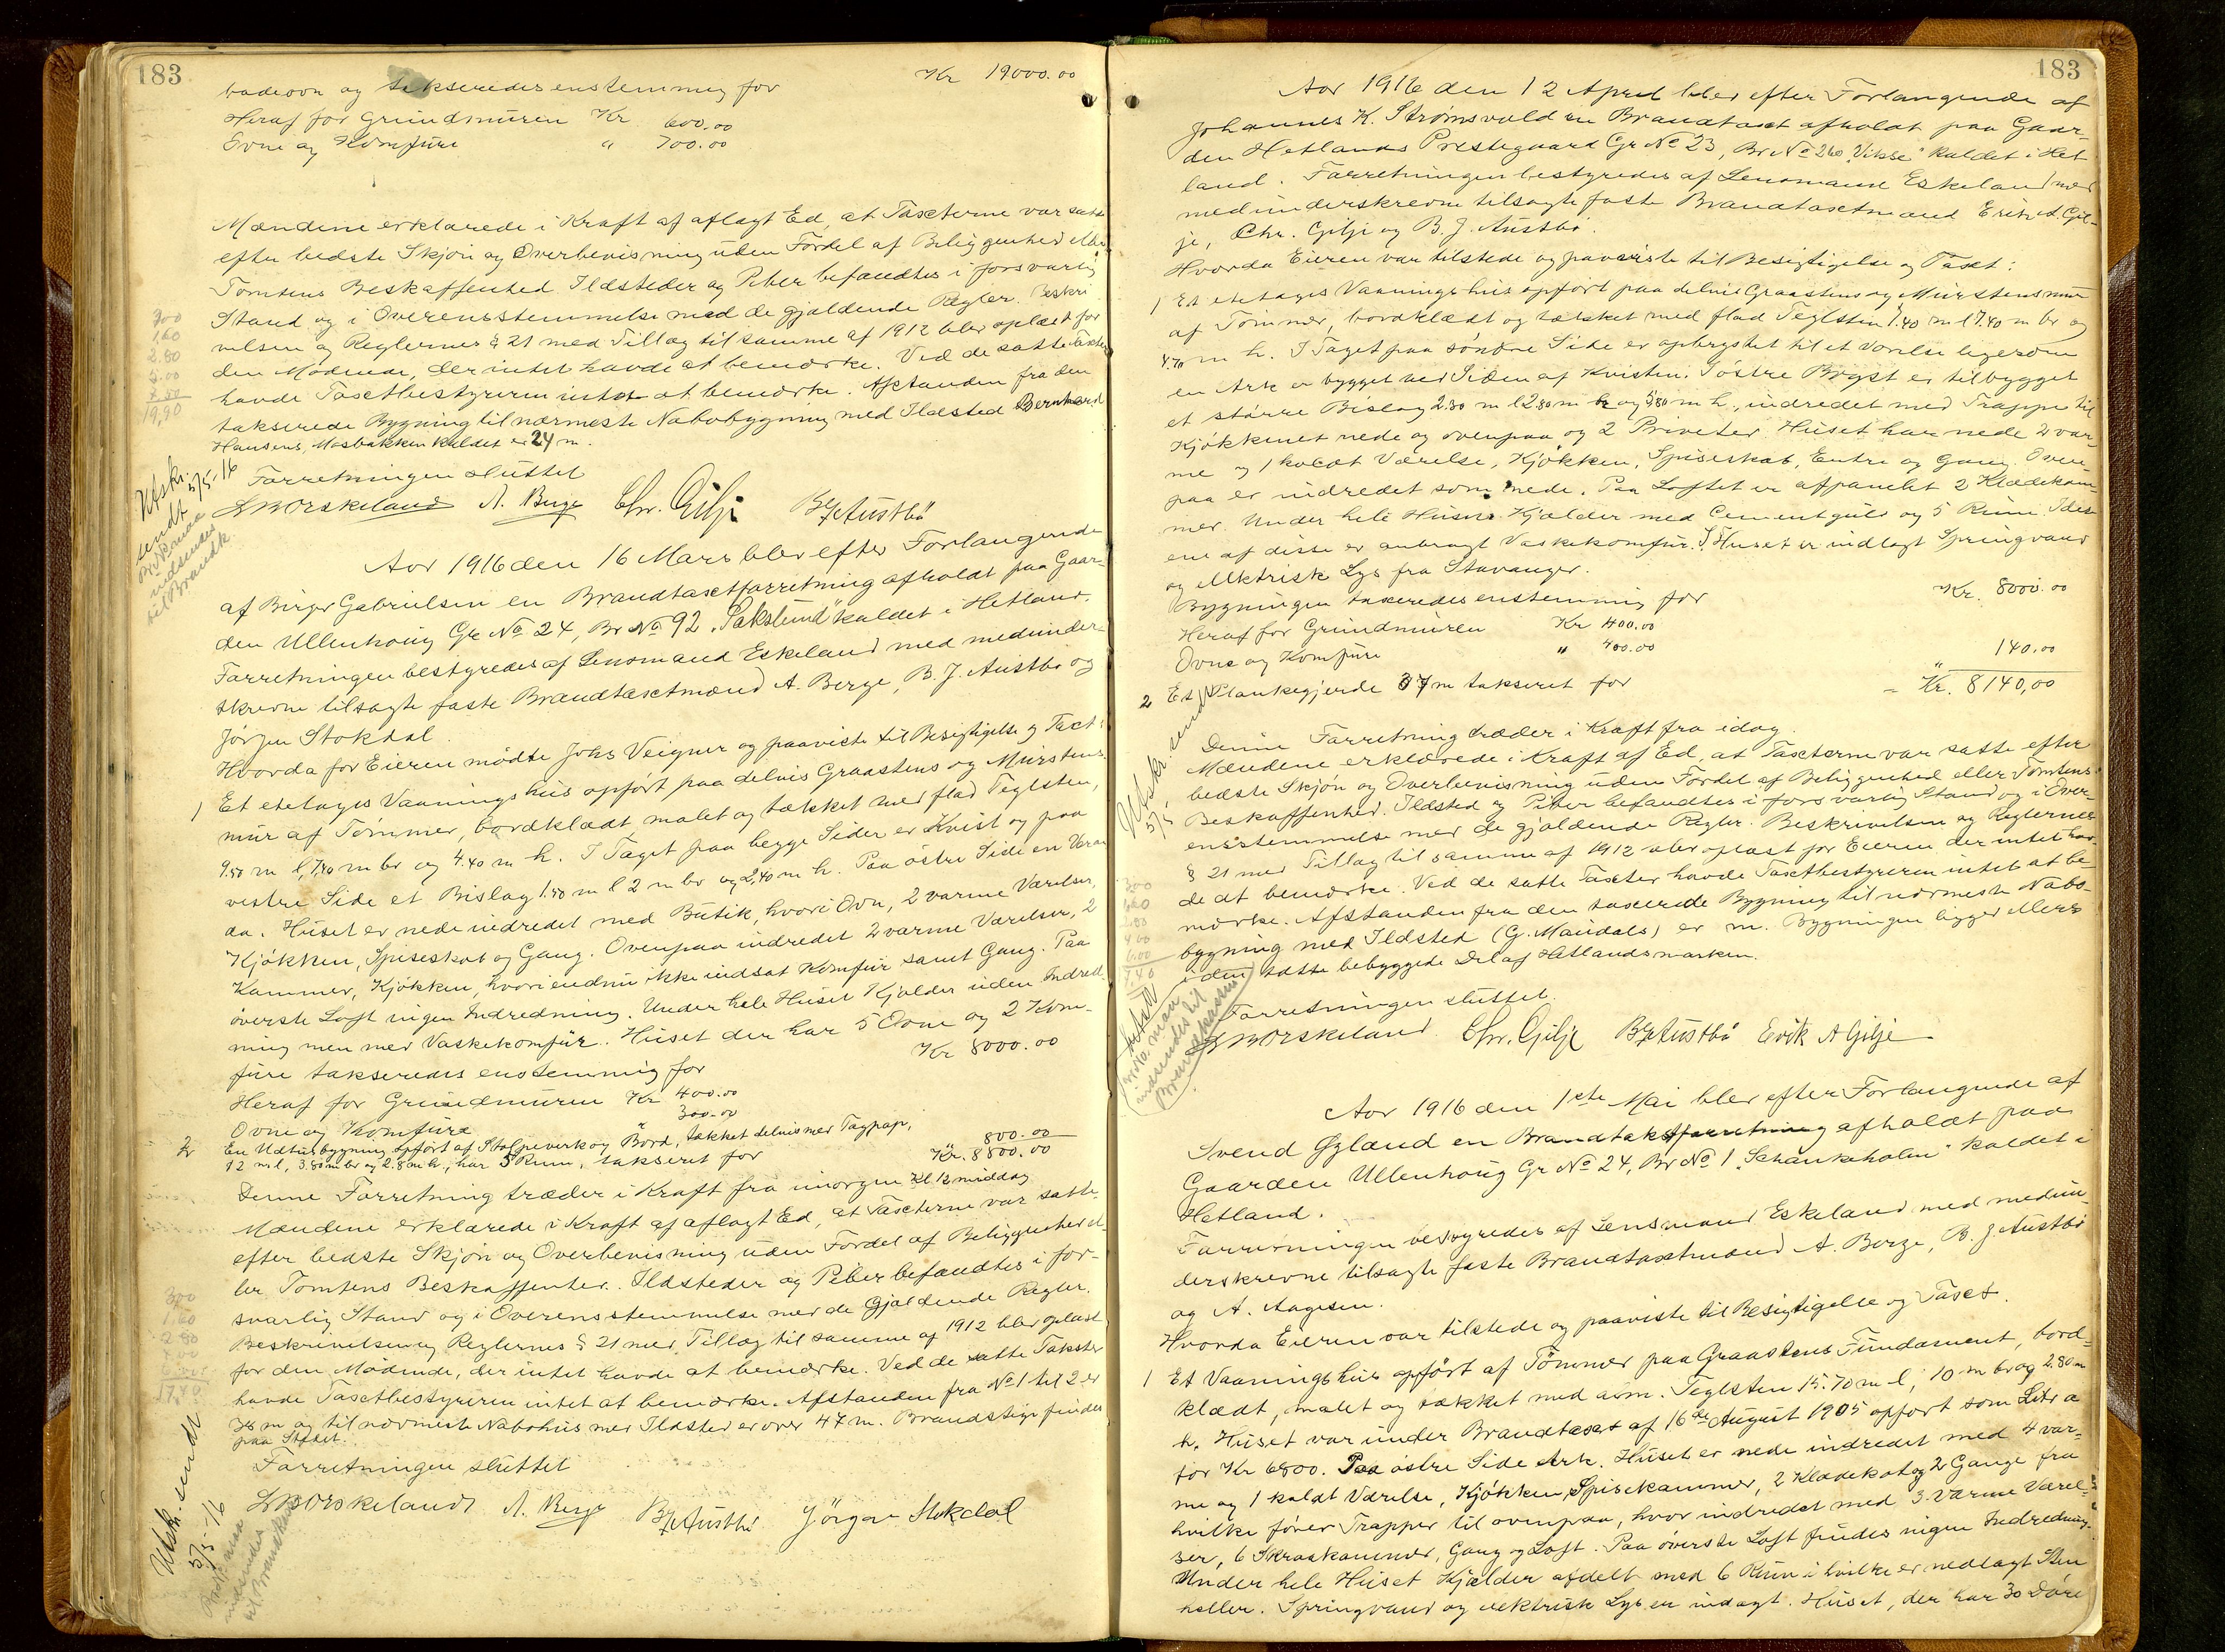 183
badeovn og takseredes enstemmig for Kr 19000.00
Heraf for Grundmuren Kr 600.00
Ovne og Komfure " 700.00
Mændene erklærede i Kraft af aflagt Ed, at Taxterne var satte
efter bedste Skjøn og Overbevisning uden Fordel af Beliggenhed eller
Tomtens Beskaffenhed. Ildsteder og Piber befandtes i forsvarlig
Stand og i Overensstemmelse med de gjældende Regler. Beskri
velsen og Reglernes § 21 med Tillæg til samme af 1912 blev oplæst for
den Mødende, der intet havde at bemærke. Ved de satte Taxter
havde Taxtbestyreren intet at bemærke. Afstanden fra den
takserede Bygning til nærmeste Nabobygning med Ildsted Bernhard
Hansens, Mosbakken kaldet er 24 m.
300
1,60
2.80
19,90
Forretningen sluttet
Utskr.
sendt 5/5-16
LWOEskeland A. Berge Chr. Gilje B J Austbø
Aar 1916 den 16 Mars blev efter Forlangende
af Birger Gabrielsen en Brandtaxtforretning afholdt paa Gaar-
den Ullenhoug Gr No 24, Br No 92 „Sakslund" kaldet i Hetland.
Forretningen bestyredes af Lensmand Eskeland med medunder-
skrevne tilsagte faste Brandtaxtmænd A. Berge, B. J. Austbø og
Jørgen Stokdal.
Hvorda for Eieren mødte Johs Veigner og paaviste til Besigtigelse og Taxt:
1 Et etetages Vaaningshus opført paa delvis Graastens og Murstens
mur af Tømmer, bordklædt, malet og tækket med flad Teglsten,
9.50 m l, 7.40 m br og 4.40 m h. I Taget paa begge Sider er Kvist og paa
vestre Side et Bislag 1.50 m l 2 m br og 2,40 m h. Paa østre Side en Veran
da. Huset er nede indredet med Butik, hvori Ovn, 2 varme Værelser,
Kjøkken, Spiseskab og Gang. Ovenpaa indredet 2 varme Værelser, 2
Kammer, Kjøkken, hvori endnu ikke indsat Komfur samt Gang. Paa
øverste Loft ingen Indredning. Under hele Huset Kjælder uden Indred
ning men med Vaskekomfur. Huset der har 5 Ovne og 2 Kom-
fure takseredes enstemmig for Kr 8000.00
Heraf for Grundmuren Kr 400.00
Ovne og Komfure " 300.00
2 En Udhusbygning opført af Stolpeverk og Bord, tækket delvis med Tagpap,
12 m l, 3.80 m br og 2.8 m h, har 5 Rum, takseret for 800.00
Kr. 8800.00
Denne Forretning træder i Kraft fra imorgen Kl 12 middag
Mændene erklærede i Kraft af aflagt Ed, at Taxterne var satte
efter bedste Skjøn og Overbevisning uden Fordel af Beliggenhed el-
ler Tomtens Beskaffenhed. Ildsteder og Piber befandtes i for-
svarlig Stand og i Overensstemmelse med de gjældende Regler.
Beskrivelsen og Reglernes § 21 med Tillæg til samme af 1912 blev oplæst
for den Mødende, der intet havde at bemærke. Ved de satte Takster
havde Taxtbestyreren intet at bemærke. Afstanden fra No 1 til 2 er
m og til nærmeste Nabohus med Ildsted er over 47 m. Brandstige findes
paa Stedet.
300
1.60
2.80
17,40
Forretningen sluttet
Utskr. sendt
5/5-16
LWOEskeland A. Berge B J Austbø Jørgen Stokdal
183
Aar 1916 den 12 April blev efter Forlangende af
Johannes K. Strømsvold en Brandtaxt afholdt paa Gaar-
den Hetlands Prestegaard Gr No 23, Br No 260 „Vikse" kaldet i Het
land. Forretningen bestyredes af Lensmand Eskeland med
medunderskrevne tilsagte faste Brandtaxtmænd Erik A. Gil-
je, Chr. Gilje og B. J. Austbø.
Hvorda Eieren var tilstede og paaviste til Besigtigelse og Taxt:
1 Et etetages Vaaningshus opført paa delvis Graastens og Murstensmur
af Tømmer, bordklædt og tækket med flad Teglsten 7.40 m l 7.40 m br og
4.70 m h. I Taget paa søndre Side er opbrystet til et Værelse ligesom
en Ark er bygget ved Siden af Kvisten. I østre Bryst er tilbygget
et større Bislag 2.30 m l 2.80 m br og 5.80 m h., indredet med Trappe til
Kjøkkenet nede og ovenpaa og 2 Priveter. Huset har nede 2 var-
me og 1 koldt Værelse, Kjøkken, Spiseskab, Entre og Gang. Oven-
paa er indredet som nede. Paa Loftet er afpanelt 2 Klædekam-
mer. Under hele Huset Kjælder med Cementgulv og 5 Rum. I den
ene af disse er anbragt Vaskekomfur. I Huset er indlagt Springvand
og elektrisk Lys fra Stavanger.
Bygningen taxeredes enstemmig for Kr. 8000.00
Heraf for Grundmuren Kr 400.00
Ovne og Komfure " 400.00
2 Et Plankegjerde 37 m takseret for " 140.00
= Kr. 8140,00
Denne Forretning træder i Kraft fra idag.
Mændene erklærede i Kraft af Ed, at Taxterne var satte efter
bedste Skjøn og Overbevisning uden Fordel af Beliggenhed eller Tomtens
Beskaffenhed. Ildsted og Piber befandtes i forsvarlig Stand og i Over-
ensstemmelse med de gjældende Regler. Beskrivelsen og Reglernes
§ 21 med Tillæg til samme af 1912 blev oplæst for Eieren der intet hav-
de at bemærke. Ved de satte Taxter havde Taxtbestyreren intet at be
mærke. Afstanden fra den taxerede Bygning til nærmeste Nabo-
bygning med Ildsted (G. Mandals) er m. Bygningen ligger ellers
i den tætte bebyggede Del af Hetlandsmarken.
Forretningen sluttet.
LWOEskeland Chr. Gilje B J Austbø Erik A Gilje
Aar 1916 den 1ste Mai blev efter Forlangende af
Svend Gyland en Brandtakstforretning afholdt paa
Gaarden Ullenhoug Gr No 24, Br No 1 „Schankeholm" kaldet i
Hetland.
Forretningen bestyredes af Lensmand Eskeland med medun
derskrevne tilsagte faste Brandtaxtmænd A. Berge, B. J Austbø
og A. Aagesen.
Hvorda Eieren var tilstede og paaviste til Besigtigelse og Taxt.
1 Et Vaaningshus opført af Tømmer paa Graastens Fundament, bord-
klædt, malet og tækket med alm. Teglsten 15.70 m l, 10 m br og 2.80 m
h. Huset var under Brandtaxt af 16de August 1905 opført som Litr a
for Kr 6800. Paa østre Side Ark. Huset er nede indredet med 4 var-
me og 1 koldt Værelse, Kjøkken, Spisekammer, 2 Klædekot og 2 Gange fra
hvilke fører Trapper til ovenpaa, hvor indredet med 3 varme Værel-
ser, 6 Skraakammer, Gang og Loft. Paa øverste Loft findes ingen Indredning.
Under hele Huset Kjælder afdelt med 6 Rum i hvilke er nedlagt Sten
heller. Springvand og elektrisk Lys er indlagt. Huset, der har 30 Døre